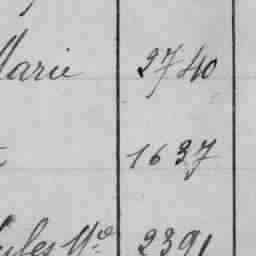 Marie 2740
1637
Jules Mce 2391